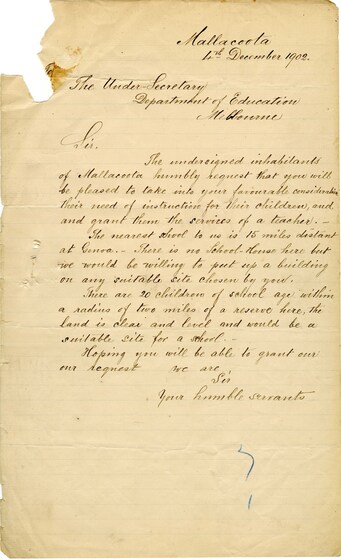 Mallacoota
4th December 1902.
The Under-Secretary
Department of Education
Melbourne
Sir.
The undersigned inhabitants
of Mallacoota humbly request that you will
be pleased to take into your favourable consideration
their need of instruction for their children, and
and grant them the services of a teacher. -
The nearest shool to us is 15 miles distant
at Genoa. - There is no School-House here but
we would be willing to put up a building
on any suitable site chosen by you.
There are 20 children of school age within
a radius of two miles of a reserve here, the
land is clear and level and would be a
suitable site for a school. -
Hoping you will be able to grant our
our request we are
Sir
Your humble servants